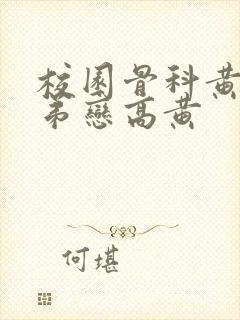 校園骨科黃
弟戀高黃
何堪